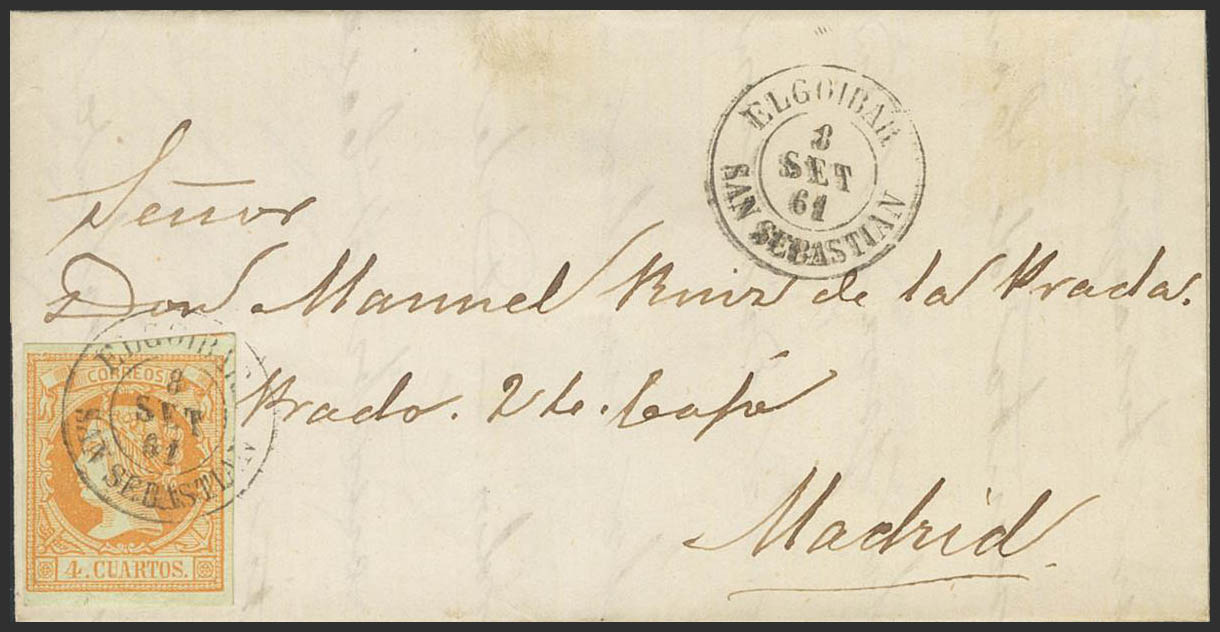 ELGOIBAR
8
SET
61
SAN SEBASTIAN
Señor
Don Manuel Ruiz de la Prada.
Prado. 2
Madrid
ELGOIBAR
8
SET
61
SAN SEBASTIAN
CORREOS
4. CUARTOS.